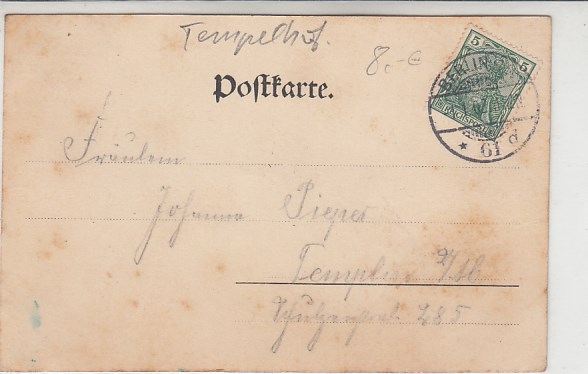 Tempelhof.
8,-€
5 5
BERLIN
Postkarte.
61 d
Fräulein
Johanna Pieper
Templin U/M
285